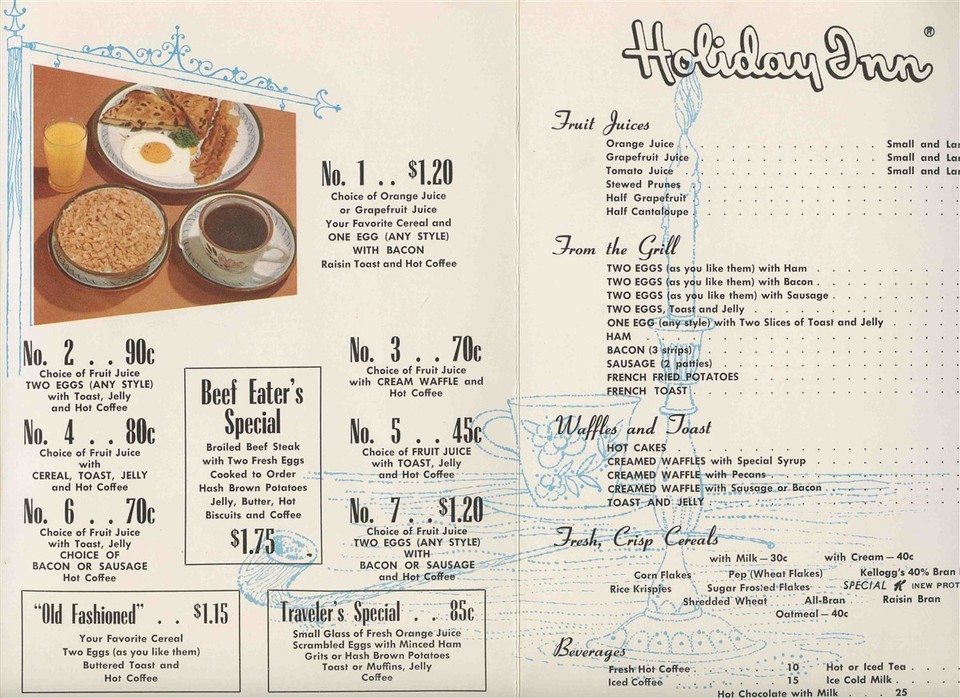 No. 1 . . $1.20
Choice of Orange Juice
or Grapefruit Juice
Your Favorite Cereal and
ONE EGG (ANY STYLE)
WITH BACON
Raisin Toast and Hot Coffee
No. 2 . . 90c
Choice of Fruit Juice
TWO EGGS (ANY STYLE)
with Toast, Jelly
and Hot Coffee
No. 4 . . 80c
Choice of Fruit Juice
with
CEREAL, TOAST, JELLY
and Hot Coffee
No. 6 . . 70c
Choice of Fruit Juice
with Toast, Jelly
CHOICE OF
BACON OR SAUSAGE
Hot Coffee
Beef Eater's
Special
Broiled Beef Steak
with Two Fresh Eggs
Cooked to Order
Hash Brown Potatoes
Jelly, Butter, Hot
Biscuits and Coffee
$1.75
No. 3 . . 70c
Choice of Fruit Juice
with CREAM WAFFLE and
Hot Coffee
No. 5 . . 45c
Choice of FRUIT JUICE
with TOAST, Jelly
and Hot Coffee
No. 7 . . $1.20
Choice of Fruit Juice
TWO EGGS (ANY STYLE)
WITH
BACON OR SAUSAGE
and Hot Coffee
"Old Fashioned" . . $1.15
Your Favorite Cereal
Two Eggs (as you like them)
Buttered Toast and
Hot Coffee
Traveler's Special . . 85c
Small Glass of Fresh Orange Juice
Scrambled Eggs with Minced Ham
Grits or Hash Brown Potatoes
Toast or Muffins, Jelly
Coffee
Holiday Inn ®
Fruit Juices
Orange Juice Small and Lar
Grapefruit Juice Small and Lar
Tomato Juice Small and Lar
Stewed Prunes
Half Grapefruit
Half Cantaloupe
From the Grill
TWO EGGS (as you like them) with Ham
TWO EGGS (as you like them) with Bacon
TWO EGGS (as you like them) with Sausage
TWO EGGS, Toast and Jelly
ONE EGG (any style) with Two Slices of Toast and Jelly
HAM
BACON (3 strips)
SAUSAGE (2 patties)
FRENCH FRIED POTATOES
FRENCH TOAST
Waffles and Toast
HOT CAKES
CREAMED WAFFLES with Special Syrup
CREAMED WAFFLE with Pecans
CREAMED WAFFLE with Sausage or Bacon
TOAST AND JELLY
Fresh, Crisp Cereals
with Milk — 30c with Cream — 40c
Corn Flakes Pep (Wheat Flakes) Kellogg's 40% Bran
Rice Krispies Sugar Frosted Flakes SPECIAL K (NEW PROT
Shredded Wheat All-Bran Raisin Bran
Oatmeal — 40c
Beverages
Fresh Hot Coffee 10 Hot or Iced Tea
Iced Coffee 15 Ice Cold Milk
Hot Chocolate with Milk 25